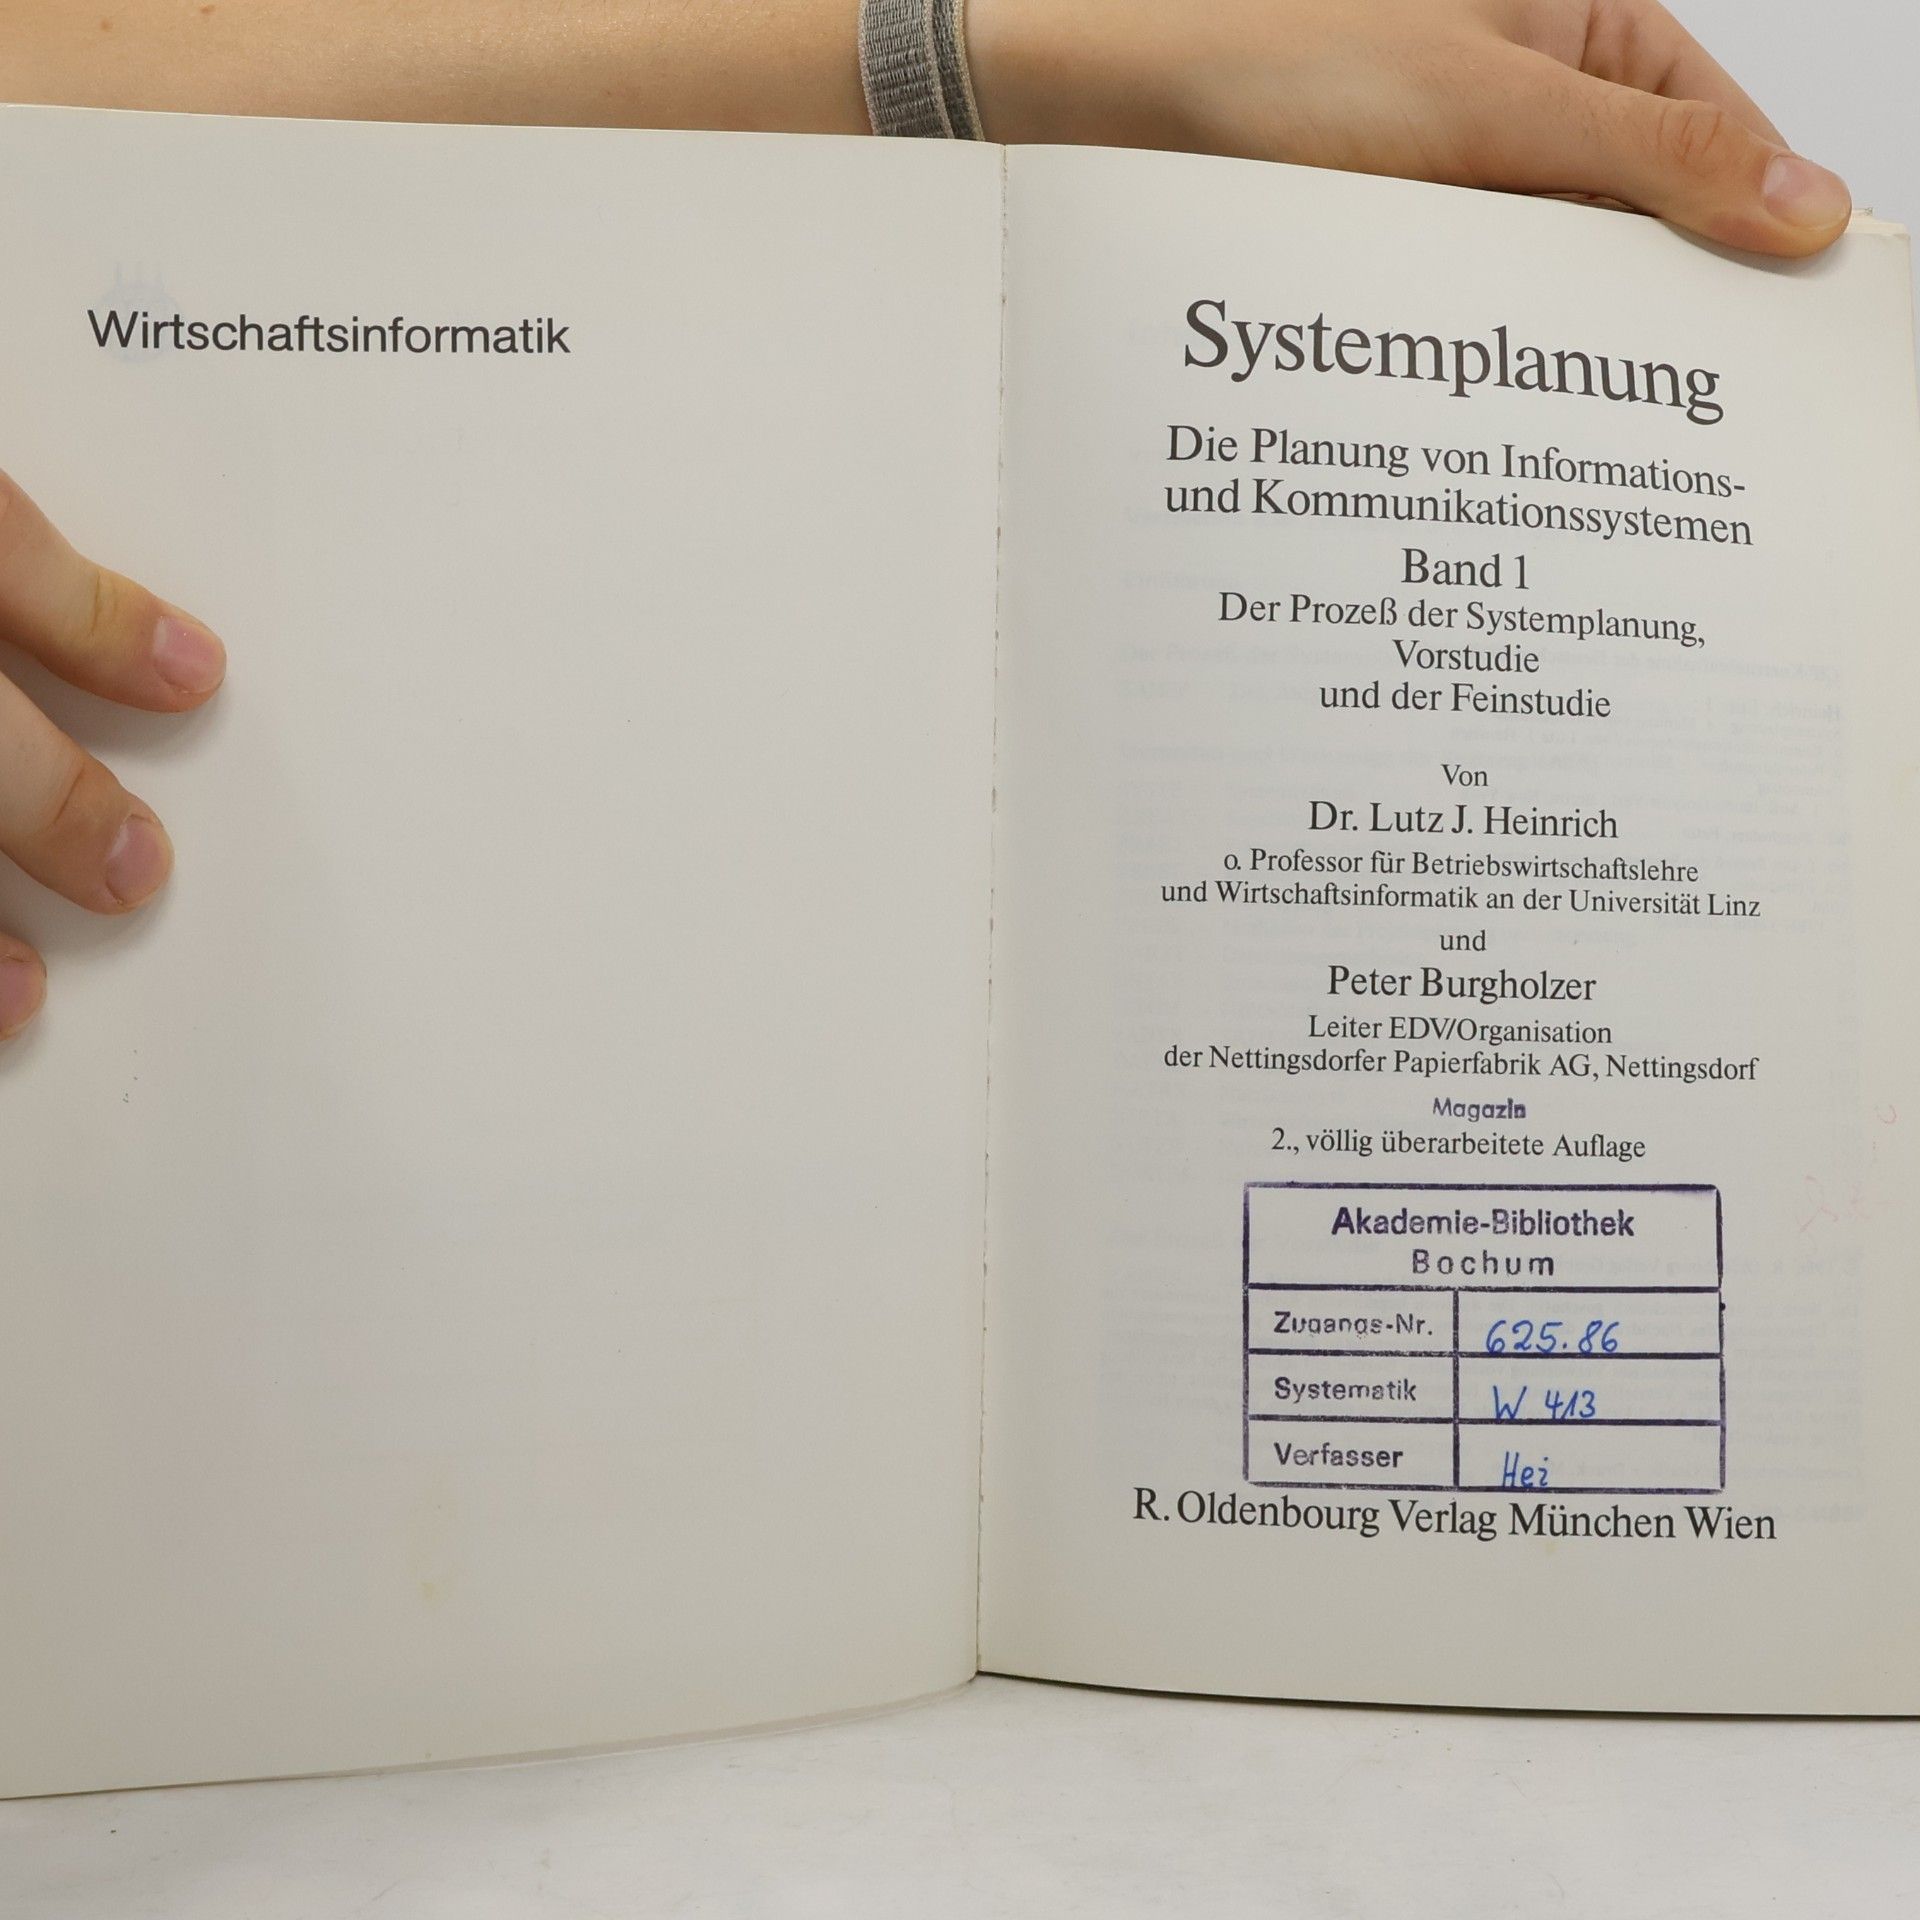 Wirtschaftsinformatik
Systemplanung
Die Planung von Informations-
und Kommunikationssystemen
Band 1
Der Prozeß der Systemplanung,
Vorstudie
und der Feinstudie
Von
Dr. Lutz J. Heinrich
o. Professor für Betriebswirtschaftslehre
und Wirtschaftsinformatik an der Universität Linz
und
Peter Burgholzer
Leiter EDV/Organisation
der Nettingsdorfer Papierfabrik AG, Nettingsdorf
Magazin
2., völlig überarbeitete Auflage
Akademie-Bibliothek
Bochum
Zugangs-Nr. 625.86
Systematik W 413
Verfasser Hei
R. Oldenbourg Verlag München Wien